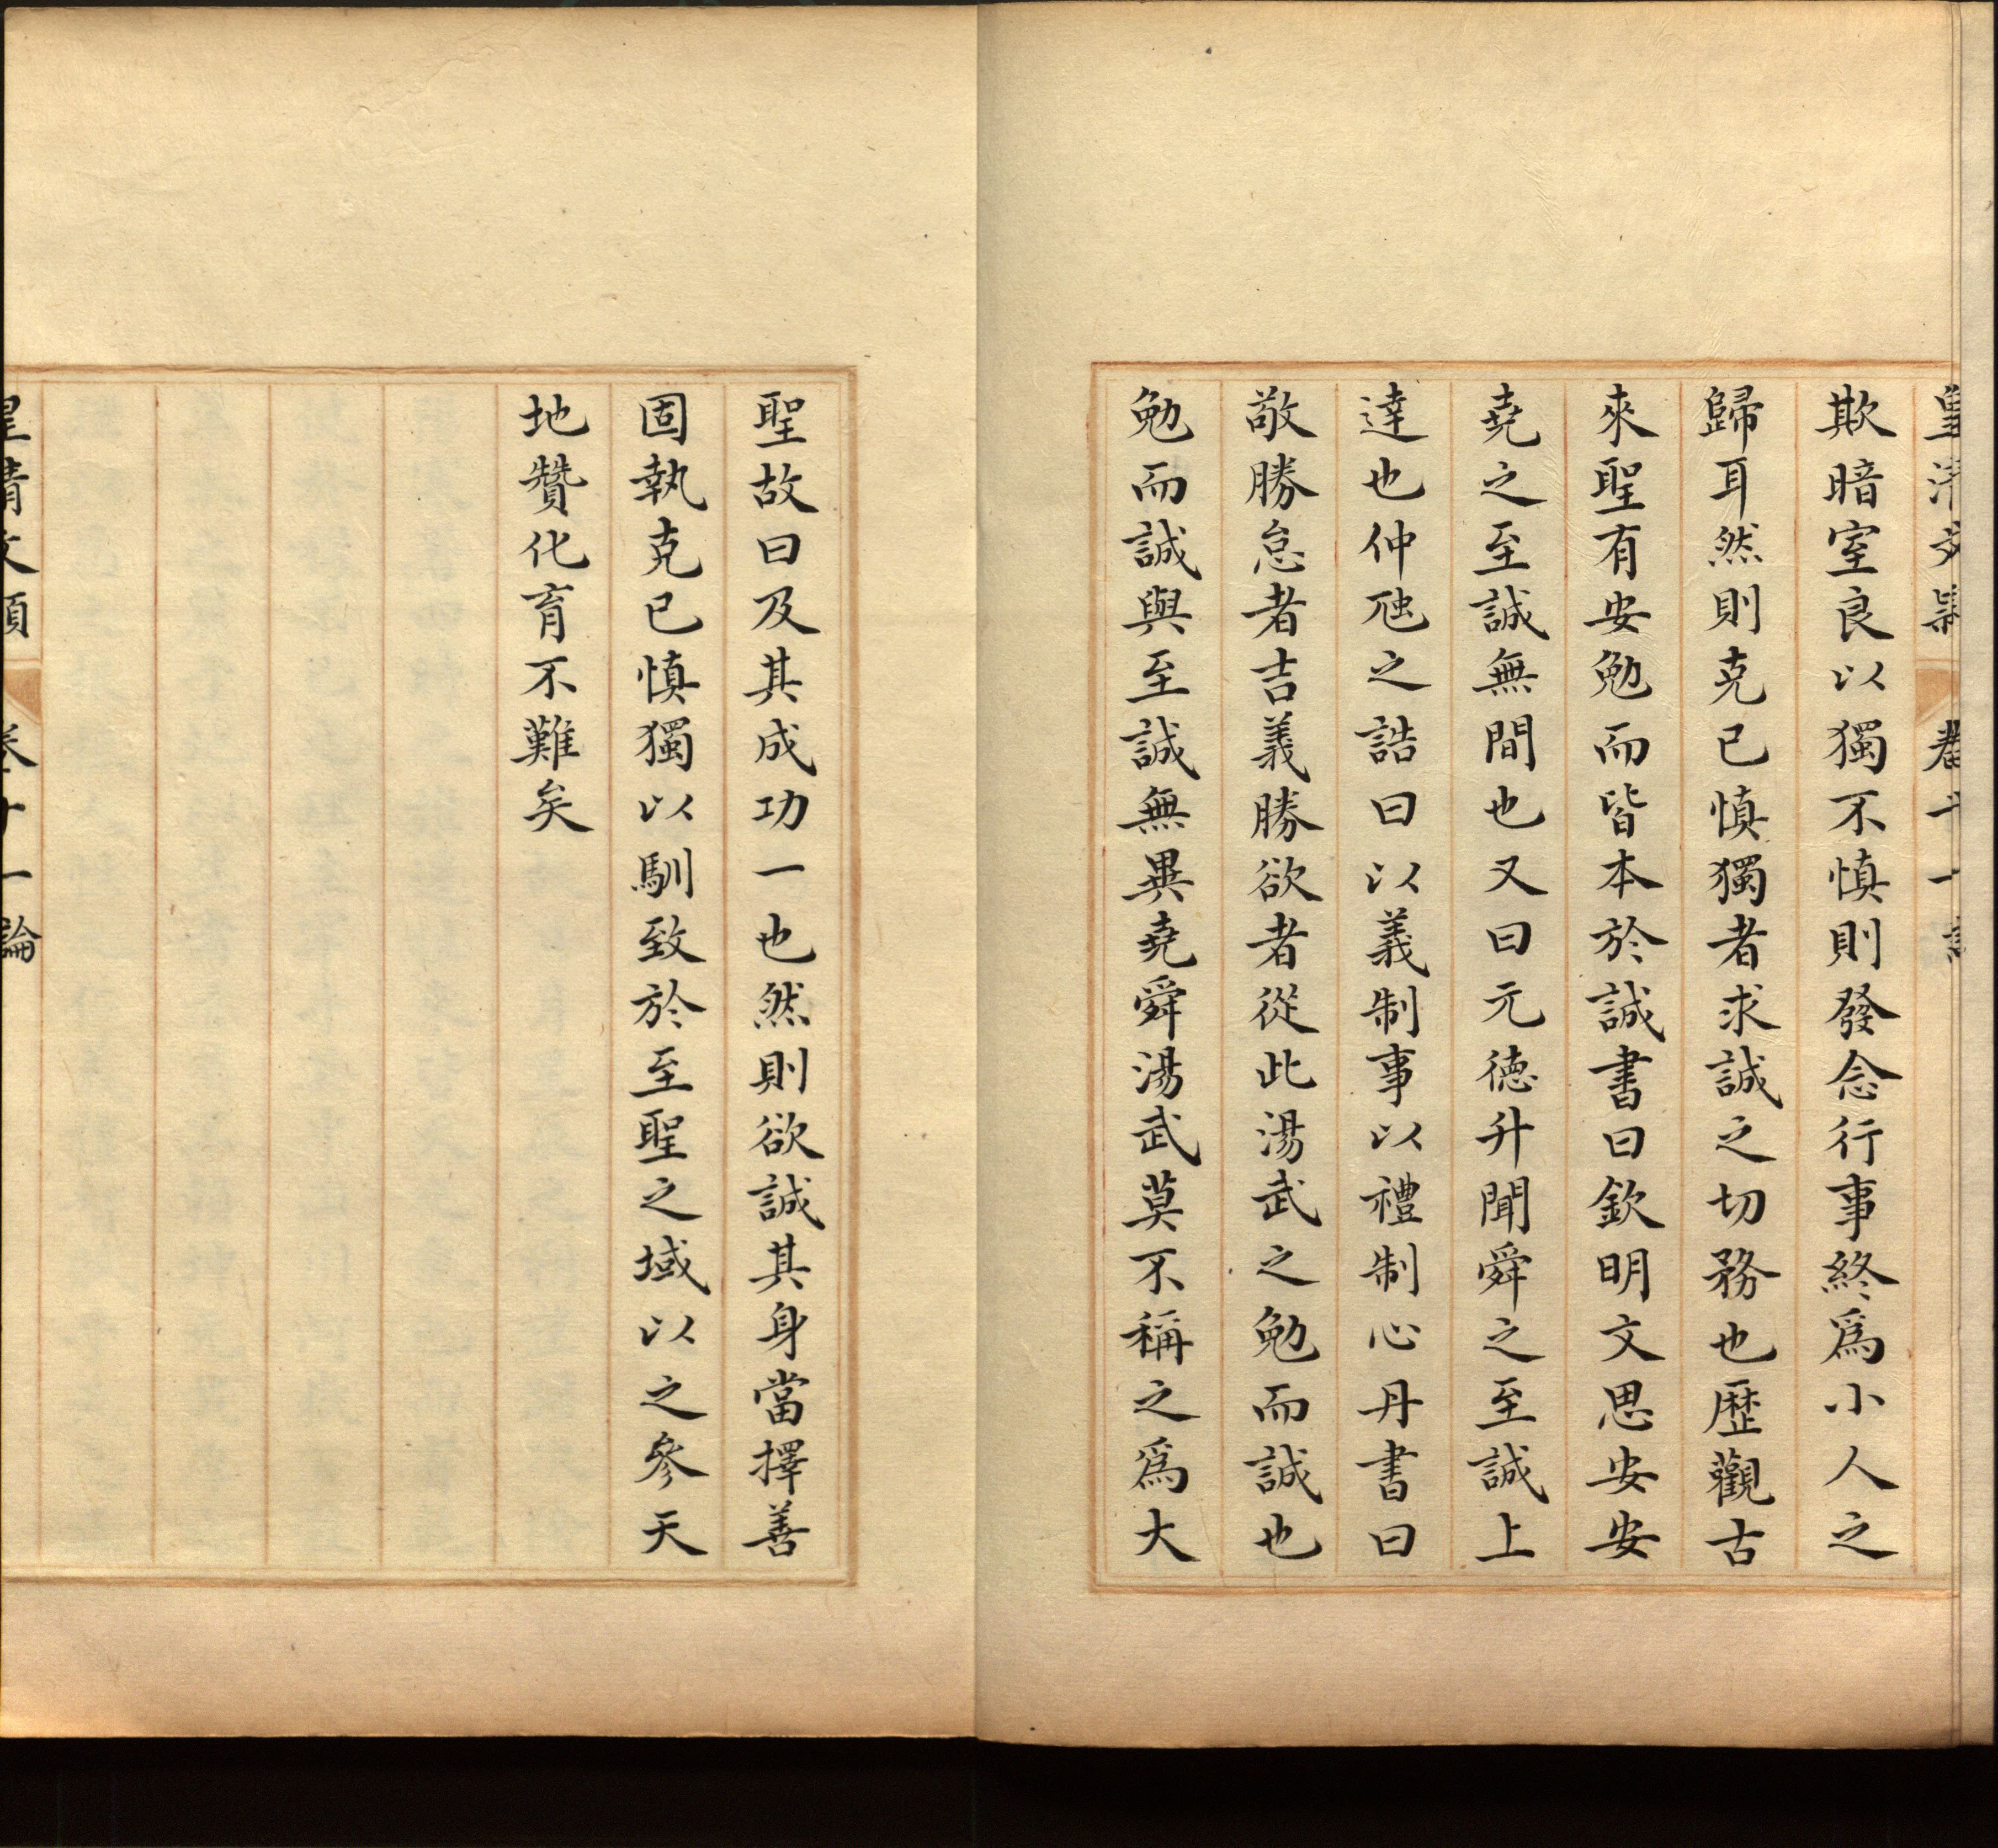 皇清文穎 卷十一論
欺暗室良以獨不慎則發念行事終爲小人之
歸耳然則克已慎獨者求誠之切務也歴觀古
來聖有安勉而皆本於誠書曰欽明文思安安
堯之至誠無間也又曰元徳升聞舜之至誠上
達也仲虺之誥曰以義制事以禮制心丹書曰
敬勝怠者吉義勝欲者從此湯武之勉而誠也
勉而誠與至誠無異堯舜湯武莫不稱之爲大
聖故曰及其成功一也然則欲誠其身當擇善
固執克已慎獨以馴致於至聖之域以之參天
地贊化育不難矣
皇清文穎 卷十一論